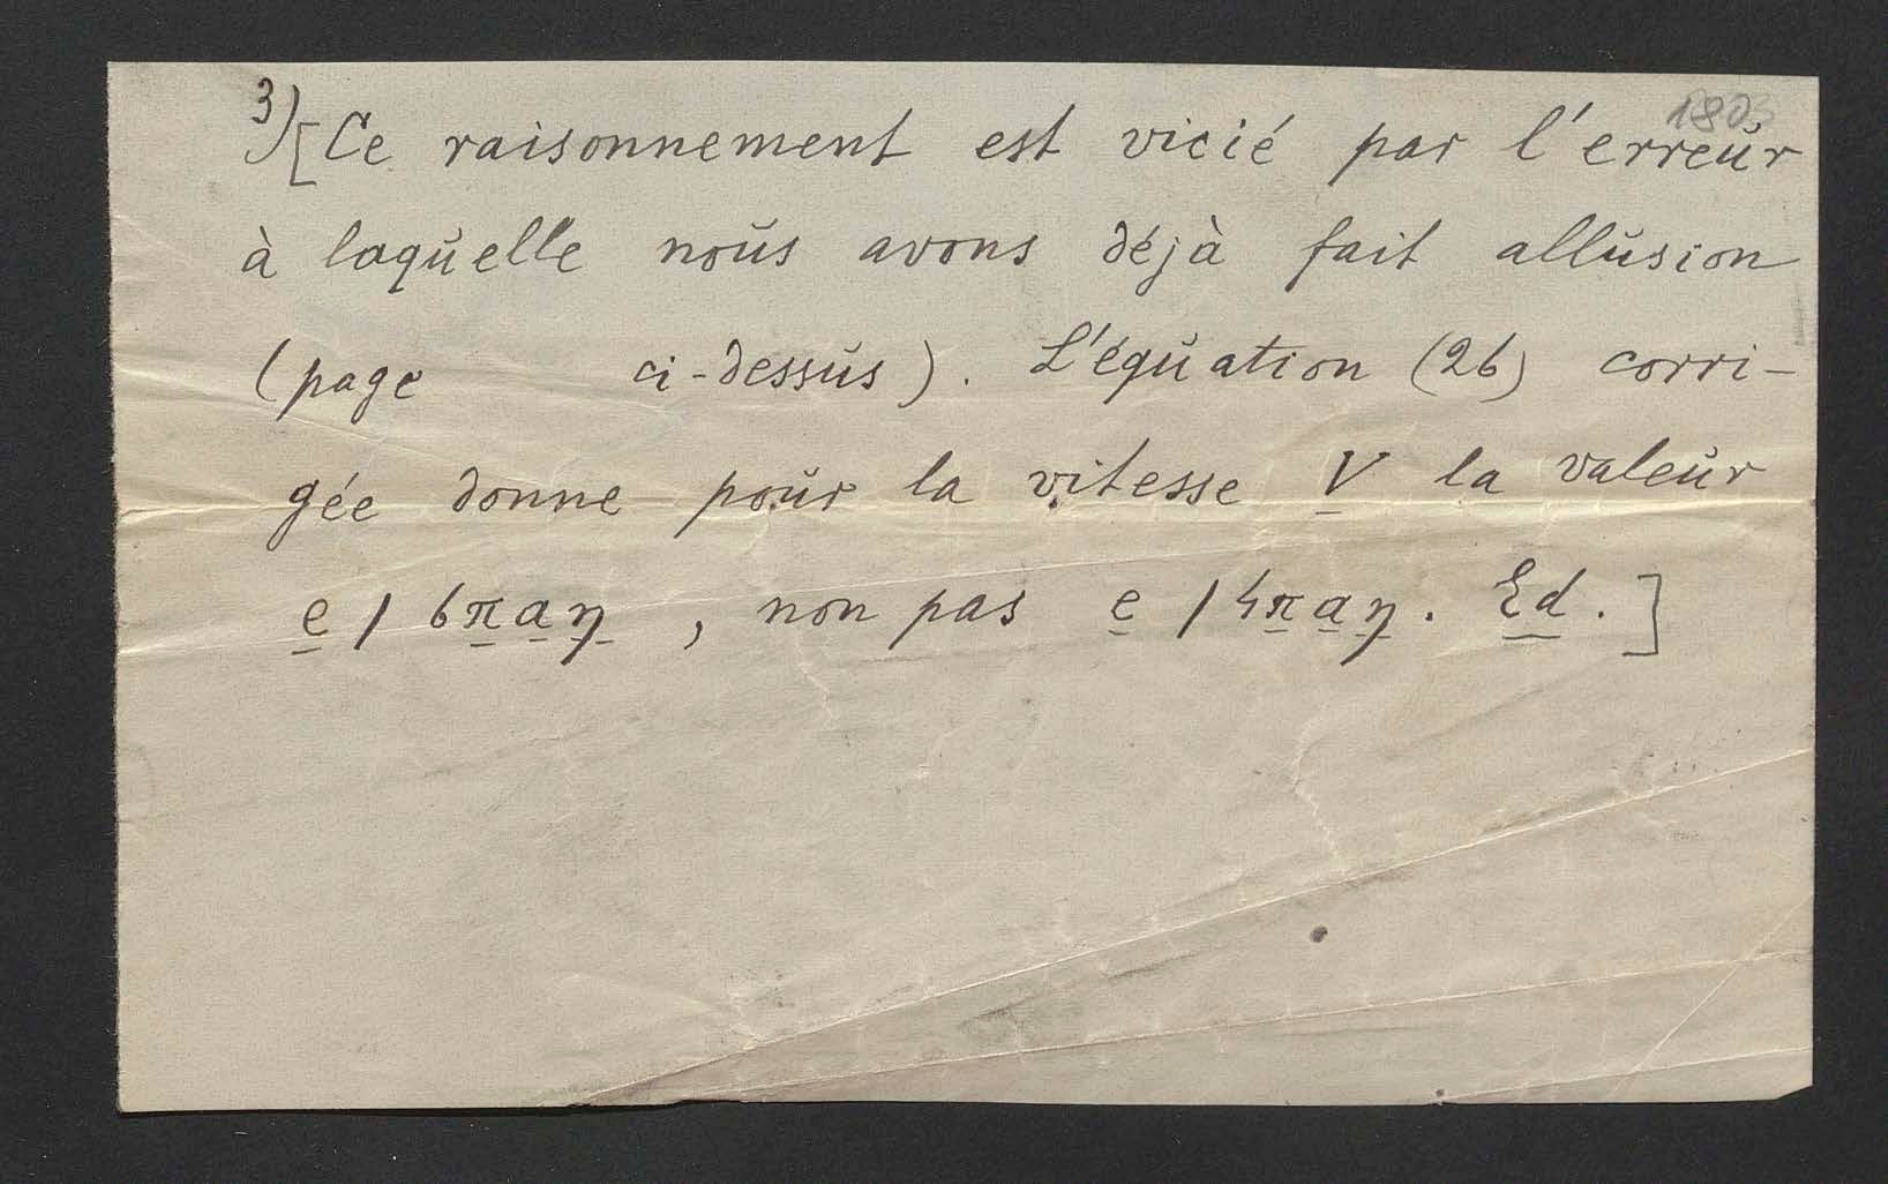 3) [Ce raisonnement est vicié par l'erreur
à laquelle nous avons déjà fait allusion
(page ci-dessus). L'équation (26) corri-
gée donne pour la vitesse V la valeur
e / 6πaη, non pas e / 4πaη. Ed.]